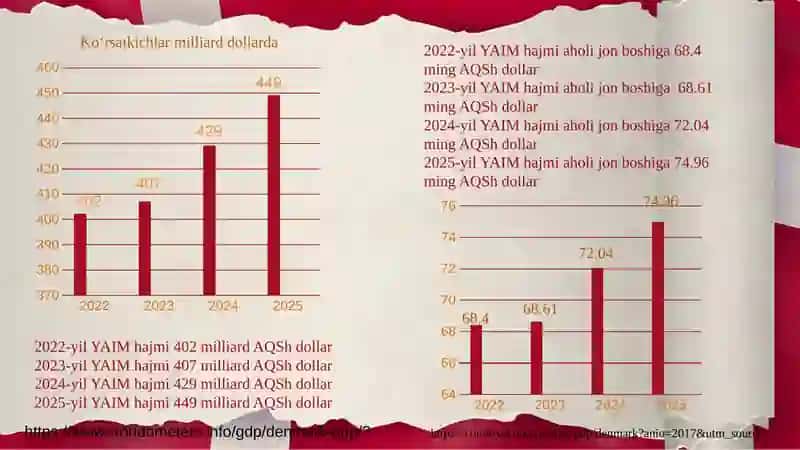 Ko‘rsatkichlar milliard dollarda
460
450
440
430
420
410
400
390
380
370
402
407
429
449
2022
2023
2024
2025
2022-yil YAIM hajmi 402 milliard AQSh dollar
2023-yil YAIM hajmi 407 milliard AQSh dollar
2024-yil YAIM hajmi 429 milliard AQSh dollar
2025-yil YAIM hajmi 449 milliard AQSh dollar
2022-yil YAIM hajmi aholi jon boshiga 68.4
ming AQSh dollar
2023-yil YAIM hajmi aholi jon boshiga 68.61
ming AQSh dollar
2024-yil YAIM hajmi aholi jon boshiga 72.04
ming AQSh dollar
2025-yil YAIM hajmi aholi jon boshiga 74.96
ming AQSh dollar
76
74
72
70
68
66
64
68,4
68,61
72,04
74,96
2022
2023
2024
2025